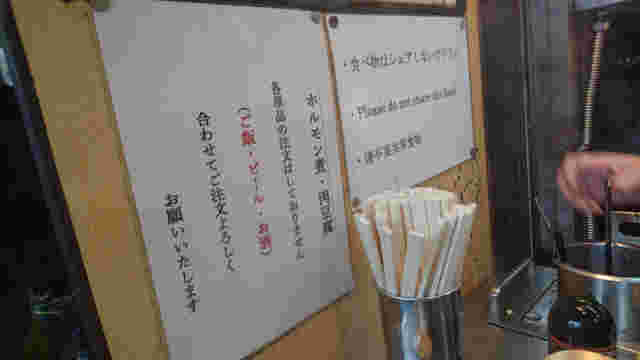 ホルモン煮・肉豆腐
各単品の注文はしておりません
(ご飯・ビール・お酒)
合わせてご注文よろしく
お願いいたします
・食べ物はシェアしないで下さい
・Please do not share the food
・请不要分享食物